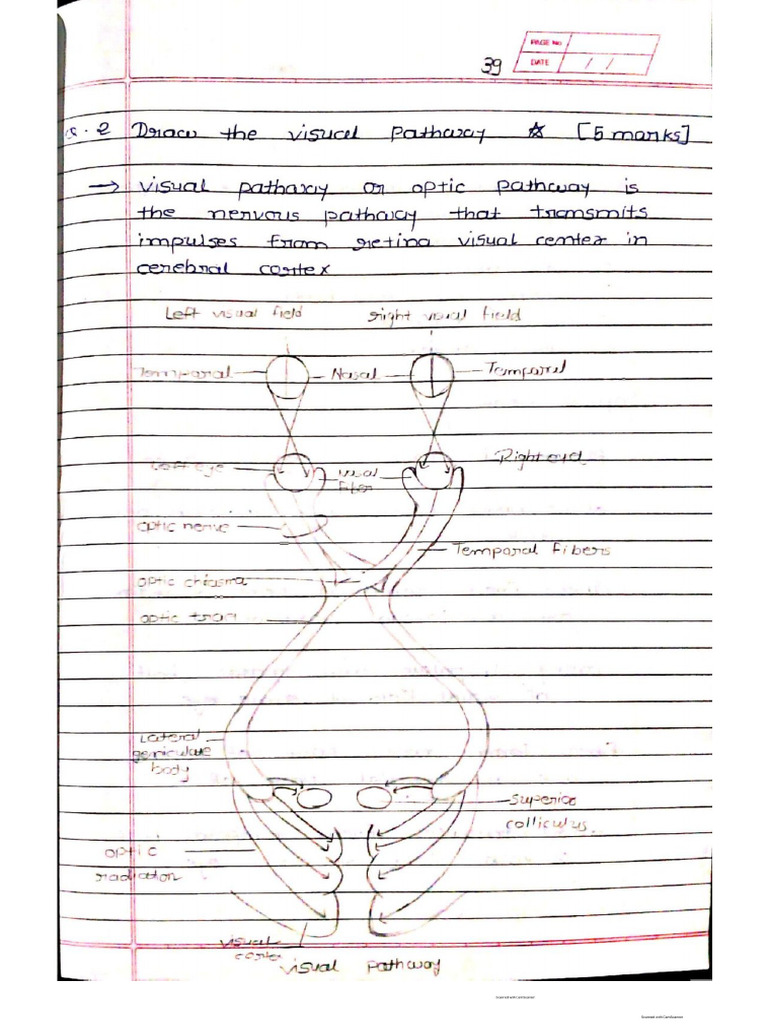 39
PAGE No
DATE / /
Q.2 Draw the visual pathway ☆ [5 marks]
→ visual pathway or optic pathway is
the nervous pathway that transmits
impulses from retina visual center in
cerebral cortex
Left visual field right visual field
Temporal Nasal Temporal
Left eye visual Right eye
fiber
optic nerve
Temporal Fibers
optic chiasma
optic tract
Lateral
geniculate
body
superior
colliculus.
optic
radiation
visual
cortex
visual pathway
Scanned with CamScanner
Scanned with CamScanner